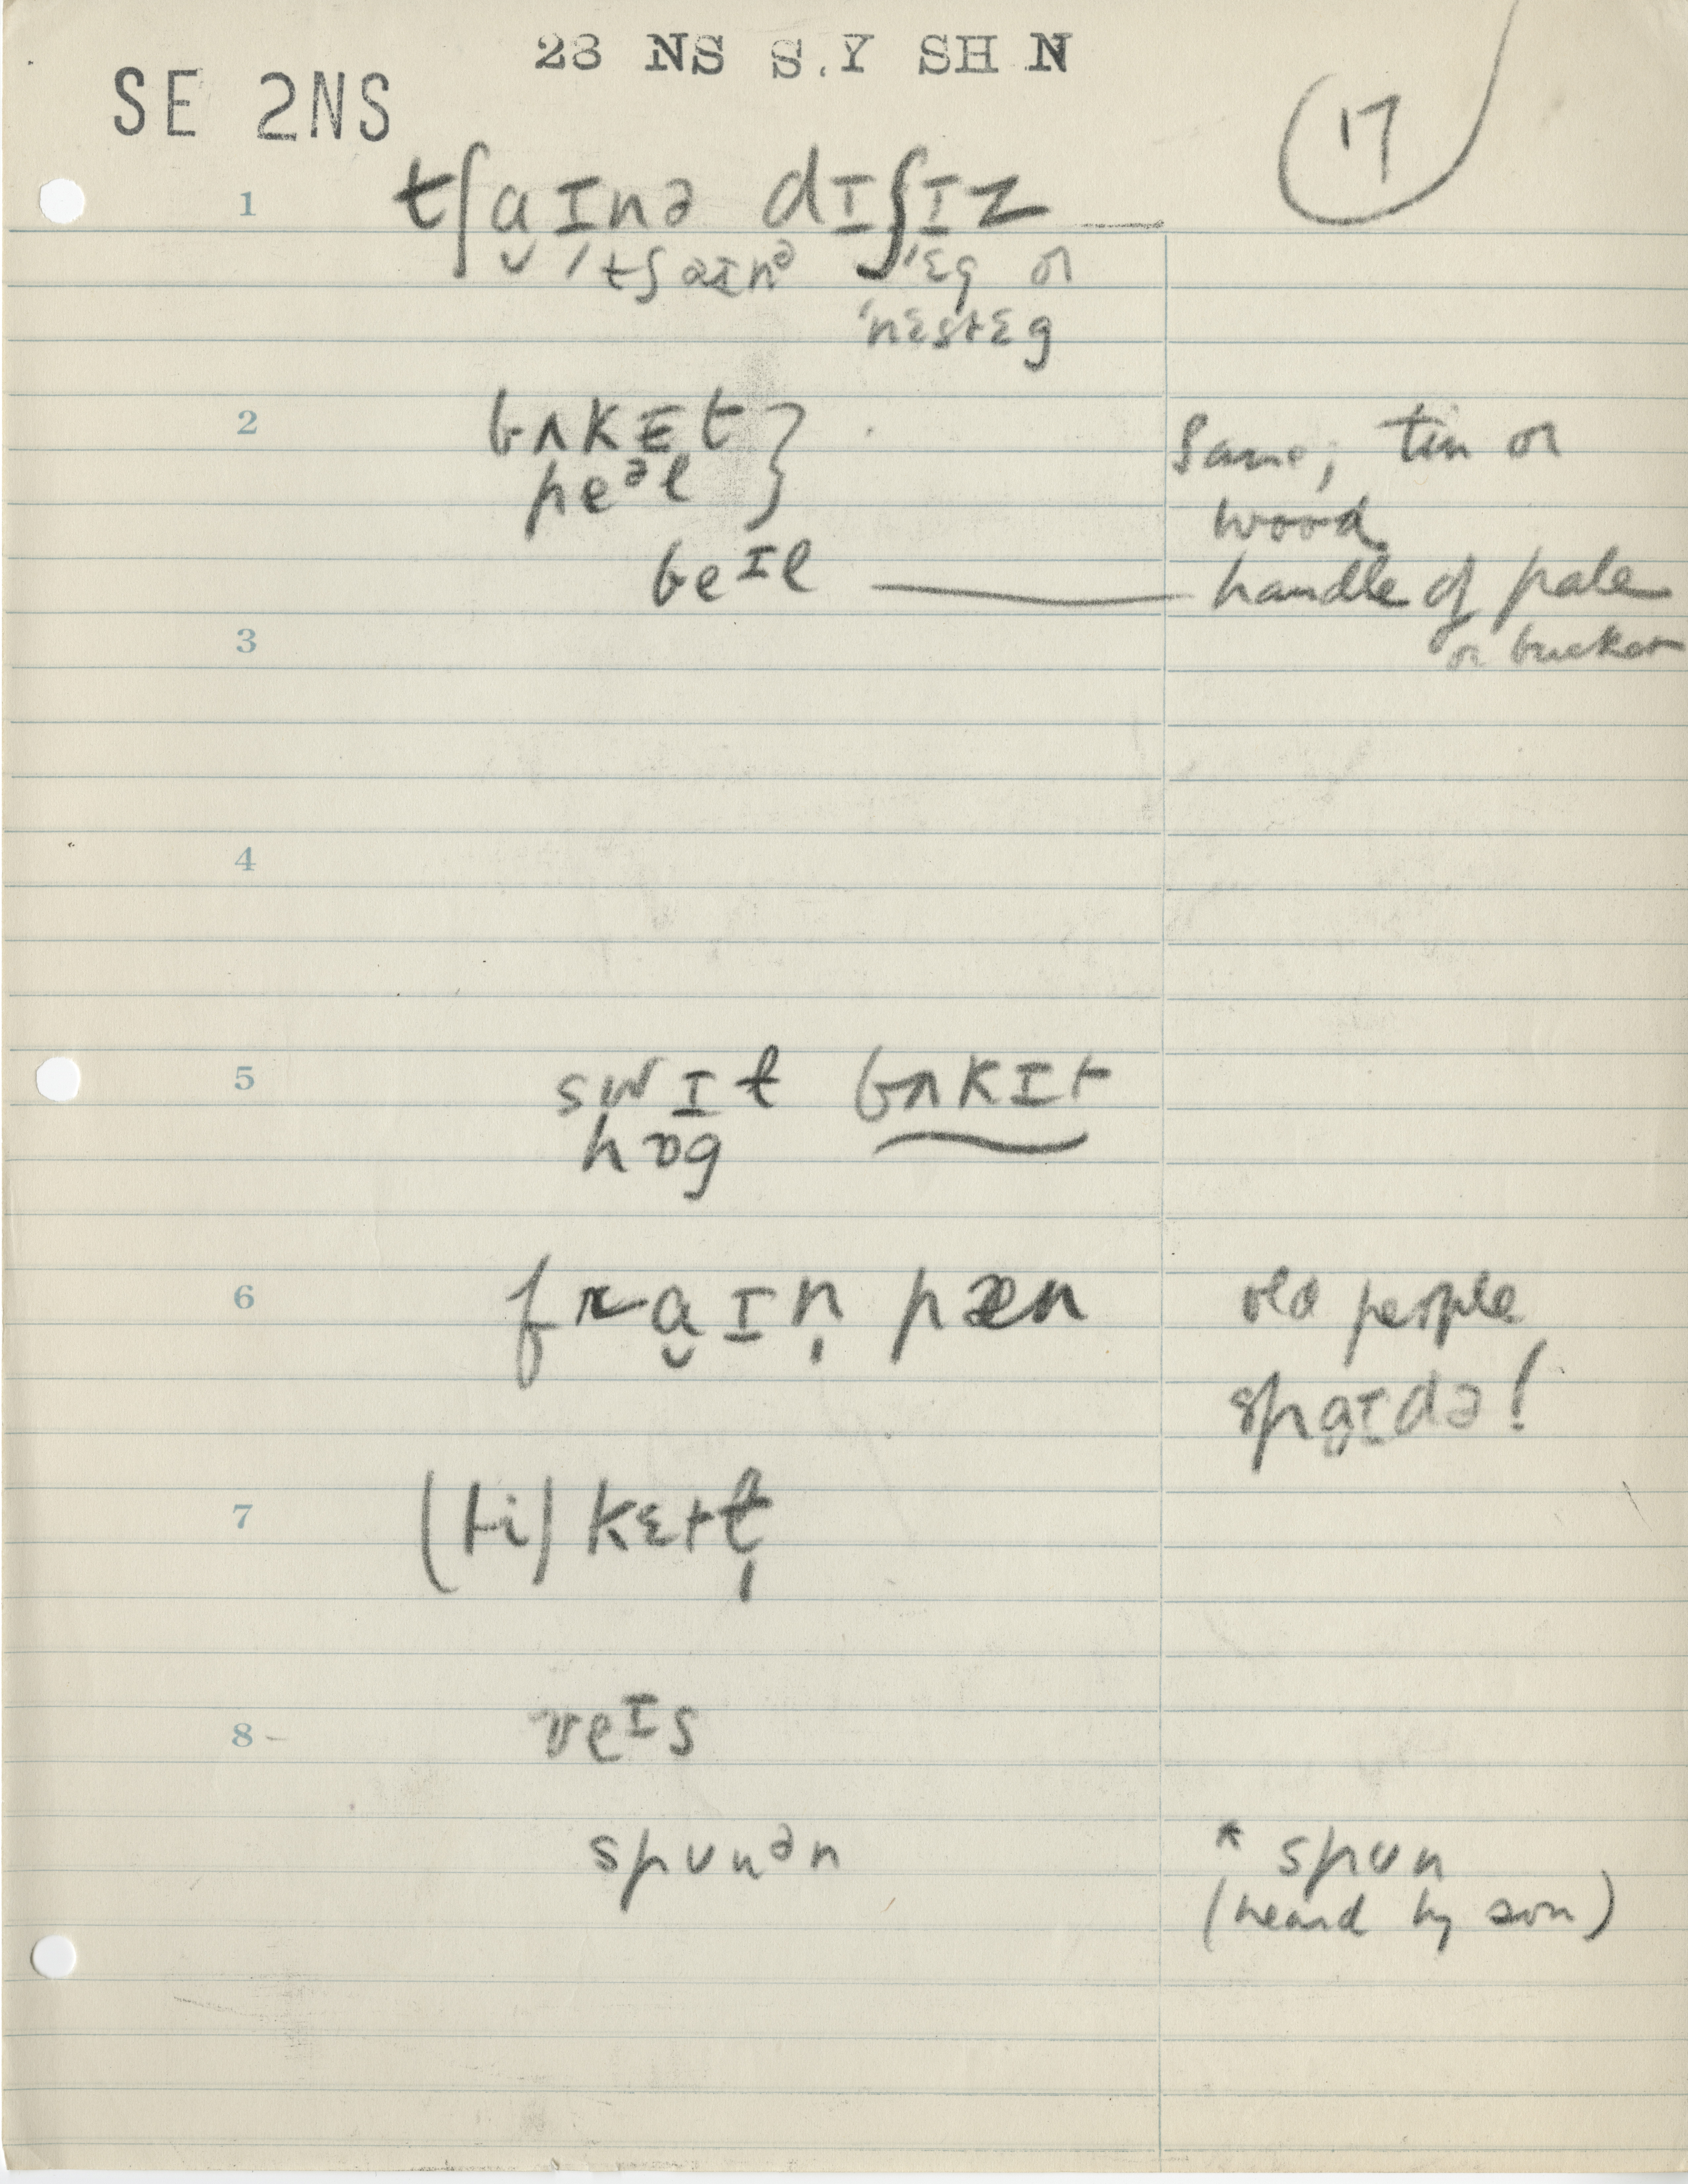 23 NS S.Y SH N
SE 2NS
17
1 tʃɑ̬ɪnə dɪʃɪz
ˈtʃaɪnᵊ ˈɛg or
ˈnɛstɛg
2 bʌkɛt } Same; tin or
peᵊl wood
beᴵl — handle of pale
or bucket
3
4
5 swɪl bʌkɪt
hɒg
6 frɑ̬ɪn̩ pæn old people
spɑɪdə!
7 (ti) kɛtl̩
8 veᴵs
spunᵊn * spun
(heard by son)